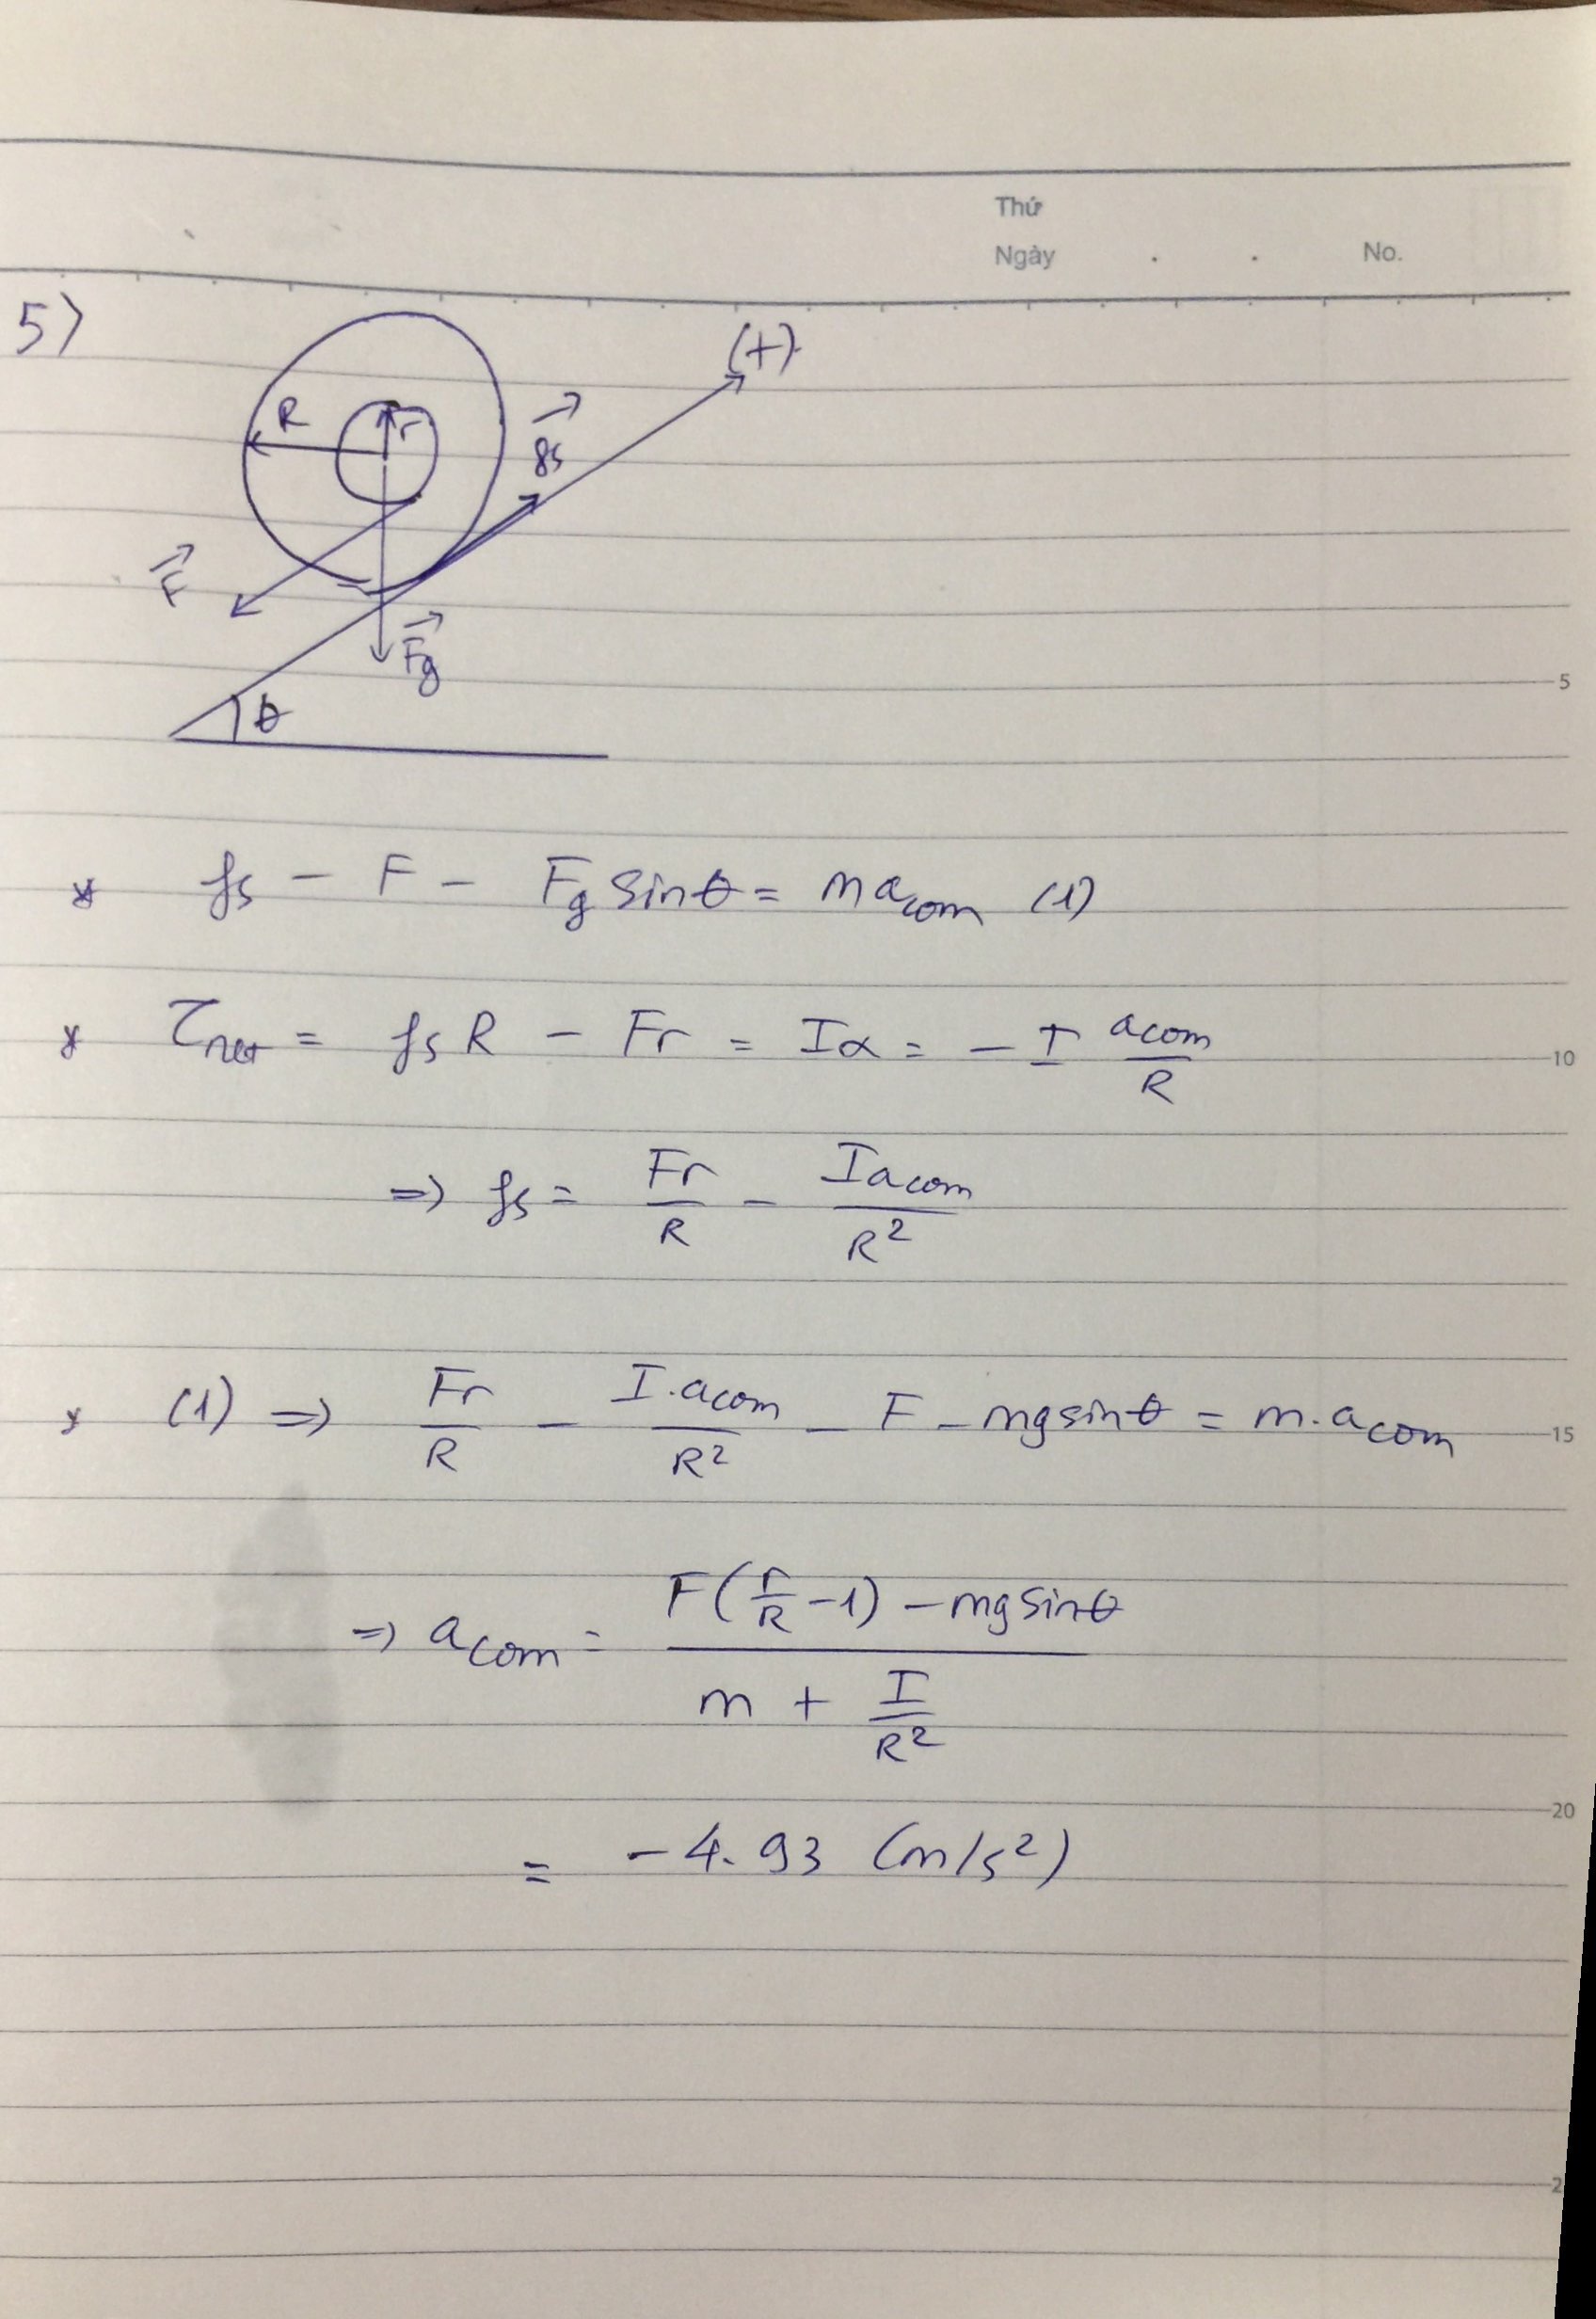 Thứ
Ngày . . No.
5)
(+)
R
r
fs
F
Fg
θ
5
* fs - F - Fg sinθ = m acom (1)
* τnet = fs R - Fr = Iα = - I acom / R
10
=> fs = Fr / R - I acom / R²
* (1) => Fr / R - I. acom / R² - F - mg sinθ = m. acom
15
=> acom = F(r/R - 1) - mg sinθ / m + I / R²
20
= - 4.93 (m/s²)
2